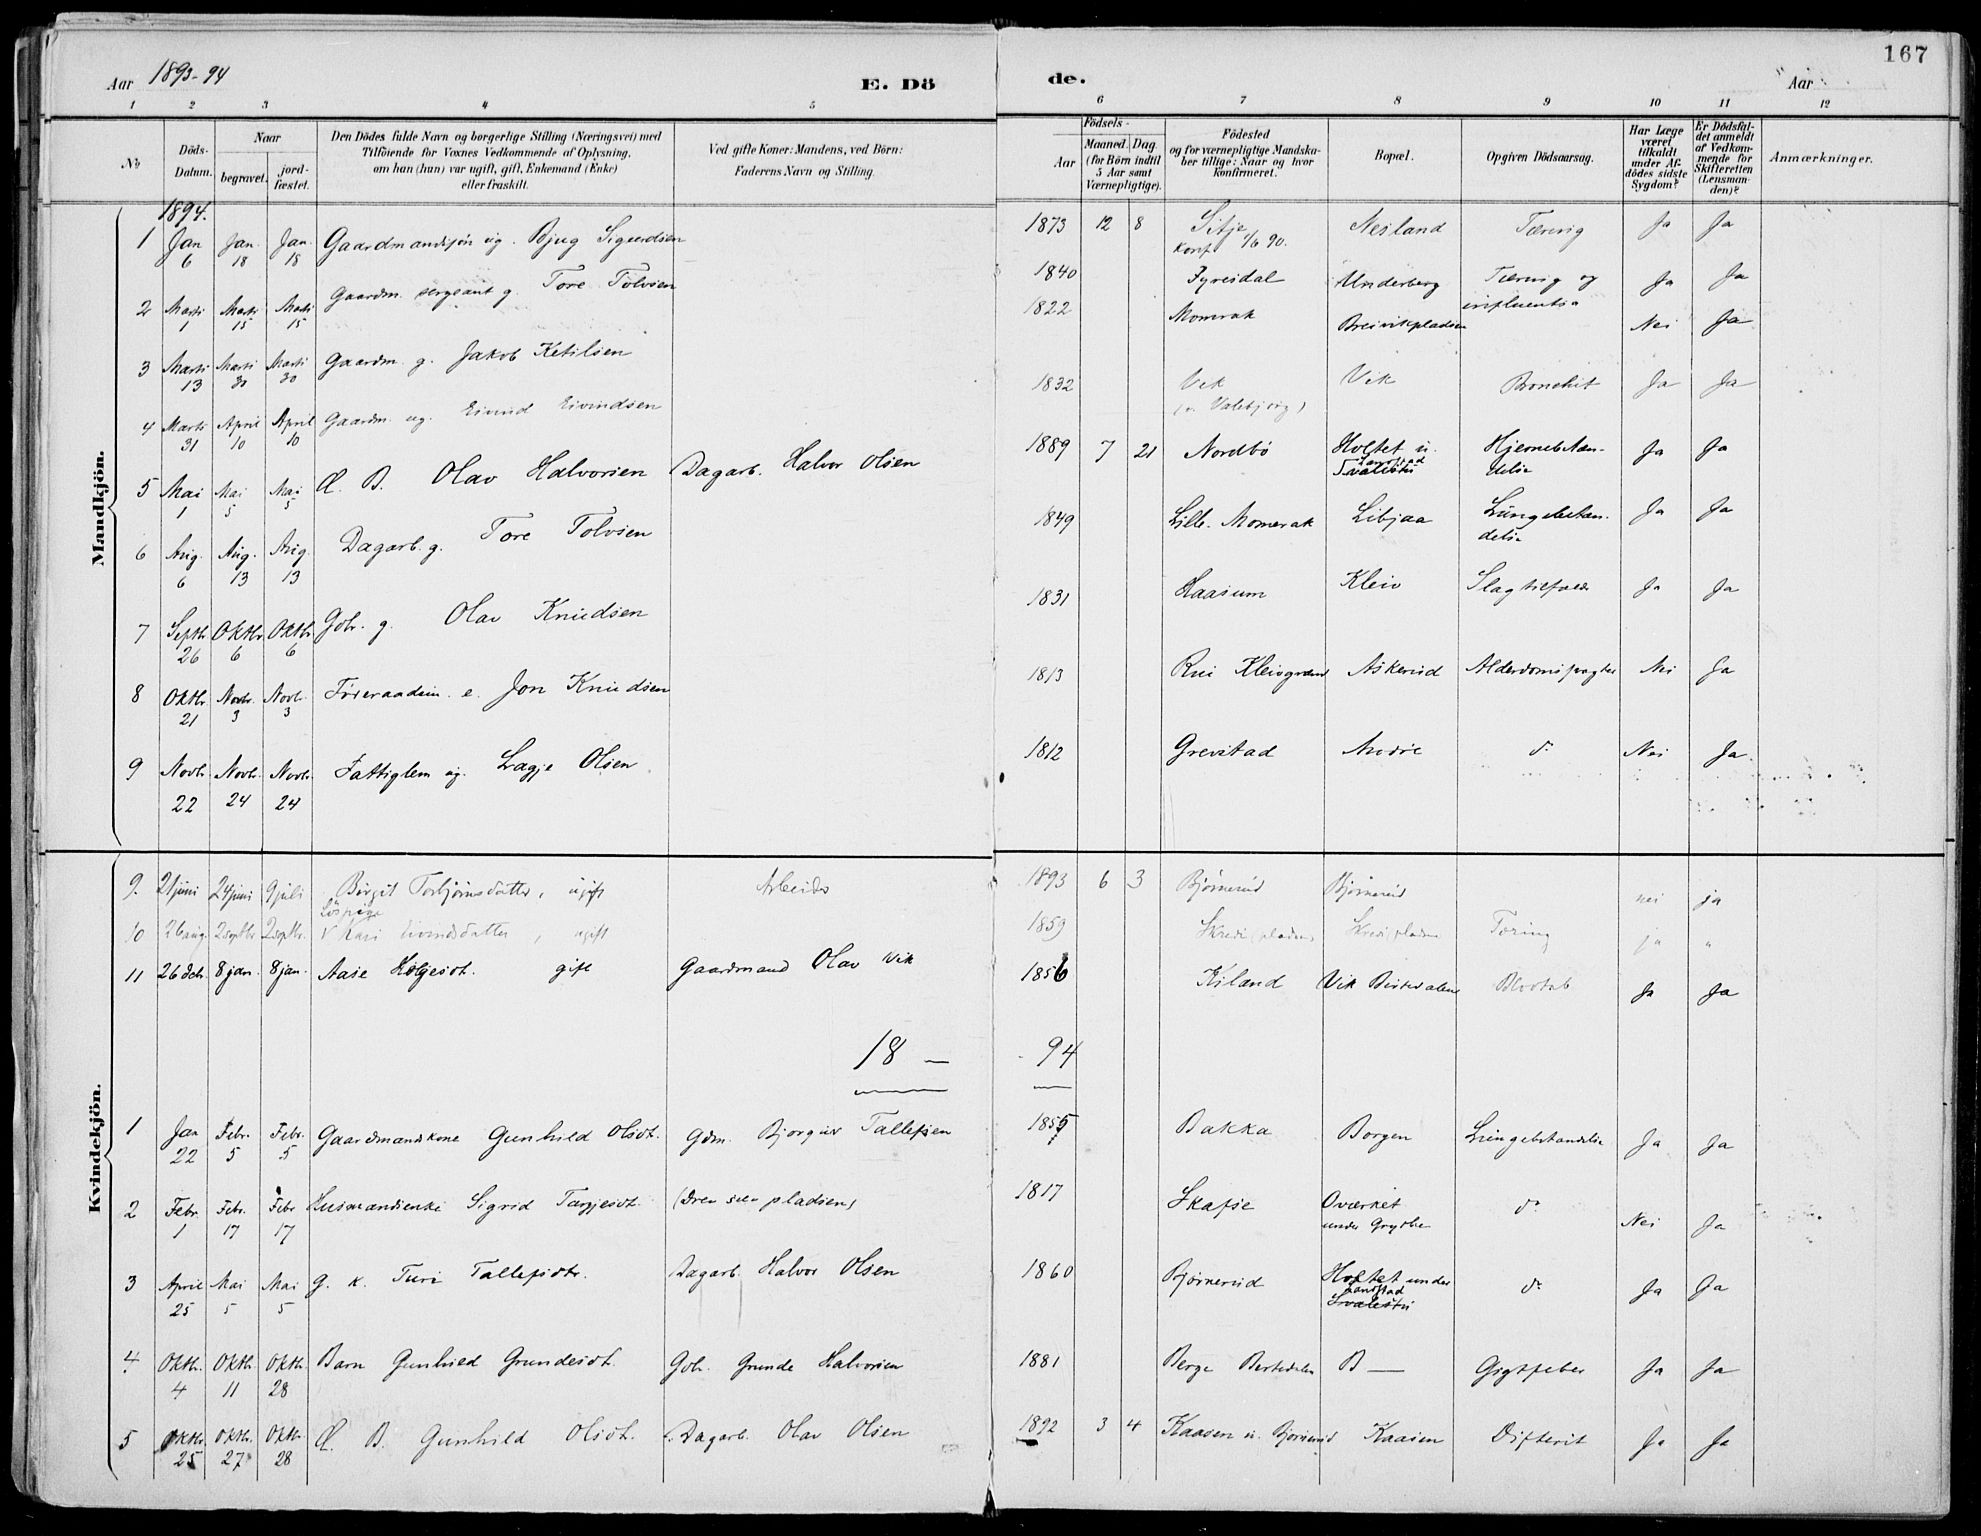 167
Aar 1893-94 E. Dö de. Aar
1 2 3 4 5 6 7 8 9 10 11 12
No
Döds-Datum.
Naar
begravet.
jord-fæstet.
Den Dödes fulde Navn og borgerlige Stilling (Næringsvei) med
Tilföiende for Voxnes Vedkommende af Oplysning,
om han (hun) var ugift, gift, Enkemand (Enke)
eller fraskilt.
Ved gifte Koner: Mandens, ved Börn:
Faderens Navn og Stilling.
Födsels-
Aar
Maaned. Dag.
(for Börn indtil
5 Aar samt
Værnepligtige).
Födested
og for værnepligtige Mandska-
ber tillige: Naar og hvor
konfirmeret.
Bopæl.
Opgiven Dödsaarsag.
Har Læge
været
tilkaldt
under Af-
dödes sidste
Sygdom?
Er Dödsfal-
det anmeldt
af Vedkom-
mende for
Skifteretten
(Lensman-
den)?
Anmærkninger.
Mandkjön.
1894.
1 Jan 6 Jan. 18 Jan. 18 Gaardmandssøn ug. Bjug Sigurdsen 1873 12 8 Sitje Konf. 90. Nesland Tærring Ja Ja
2 Marts 1 Marts 15 Marts 15 Gaardm. sergeant g. Tore Tolvsen 1840 Fyresdal Underberg Tærring og influentsa Ja Ja
3 Marts 13 Marts 30 Marts 30 Gaardm. g. Jakob Ketilsen 1822 Momrak Breivikpladsen Nei Ja
4 Marts 31 April 10 April 10 Gaardm. ug. Eivind Eivindsen 1832 Vik Vik Bronchit Ja Ja
5 Mai 1 Mai 5 Mai 5 Æ. B. Olav Halvorsen Dagarb. Halvor Olsen 1889 7 21 Nordbö Holtet u. Hjernebtæn-delse Ja Ja
6 Aug. 6 Aug. 13 Aug. 13 Dagarb. g. Tore Tolvsen 1849 Lille-Momrak Libjaa Lungebetæn-delse Ja Ja
7 Septb. 26 Oktbr. 6 Oktbr. 6 Gbr. g. Olav Knudsen 1831 Haasum Kleiv Slagtilfælde Ja Ja
8 Oktb. 21 Novbr. 3 Novb. 3 Føderaadsm. e. Jon Knudsen 1813 Rui Kleivgrænd Askerud Alderdomssvaghed Nei Ja
9 Novb. 22 Novb. 24 Novb. 24 Fattiglem ug. Olsen 1812 Grevstad Modre do Nei Ja
Kvindekjön.
9. 21 juni 24 juni 9 juli Birgit Torbjørnsdatter, ugift Arbeider 1893 6 3 Bjørnerud Bjørnerud nei ja
10 26 aug. 2 septbr 2 septbr. Kari Eivindsdatter, ugift 1859 Skredspladsen Skredspladsen Tæring ja "
11 26 deb. 8 jan. 8 jan. Aase Helgesdt. gift Gaardmand Olav Vik 1856 Kiland Vik Bestedalen Blodtab Ja Ja
18 — 94
1 Jan 22 Febr. 5 Febr. 5 Gaardmandskone Gunhild Olsdt. Gdm. Bjorguv Tallefsen 1855 Bakka Borgen Lungebetændelse Ja Ja
2 Febr. 1 Febr. 17 Febr 17 Husmandsenke Sigrid Targjesdt. 1817 Skafse Overket under Grydhe do Nei Ja
3 April 25 Mai 5 Mai 5 g. k. Turi Tallefsdtr. Dagarb. Halvor Olsen 1860 Bjørnerud Holtet under Landstad do Ja Ja
4 Oktb. 4 Oktb. 11 Oktb. 28 Barn Gunhild Grundesdt. Gbr. Grunde Halvorsen 1881 Berge Bestedalen B — Gigtfeber Ja Ja
5 Oktbr. 25 Oktb. 27 Oktb. 28 Æ. B. Gunhild Olsdt. Dagarb. Olav Olsen 1892 3 4 Kaasen u. Bjørnerud Kaasen Difterit Ja Ja